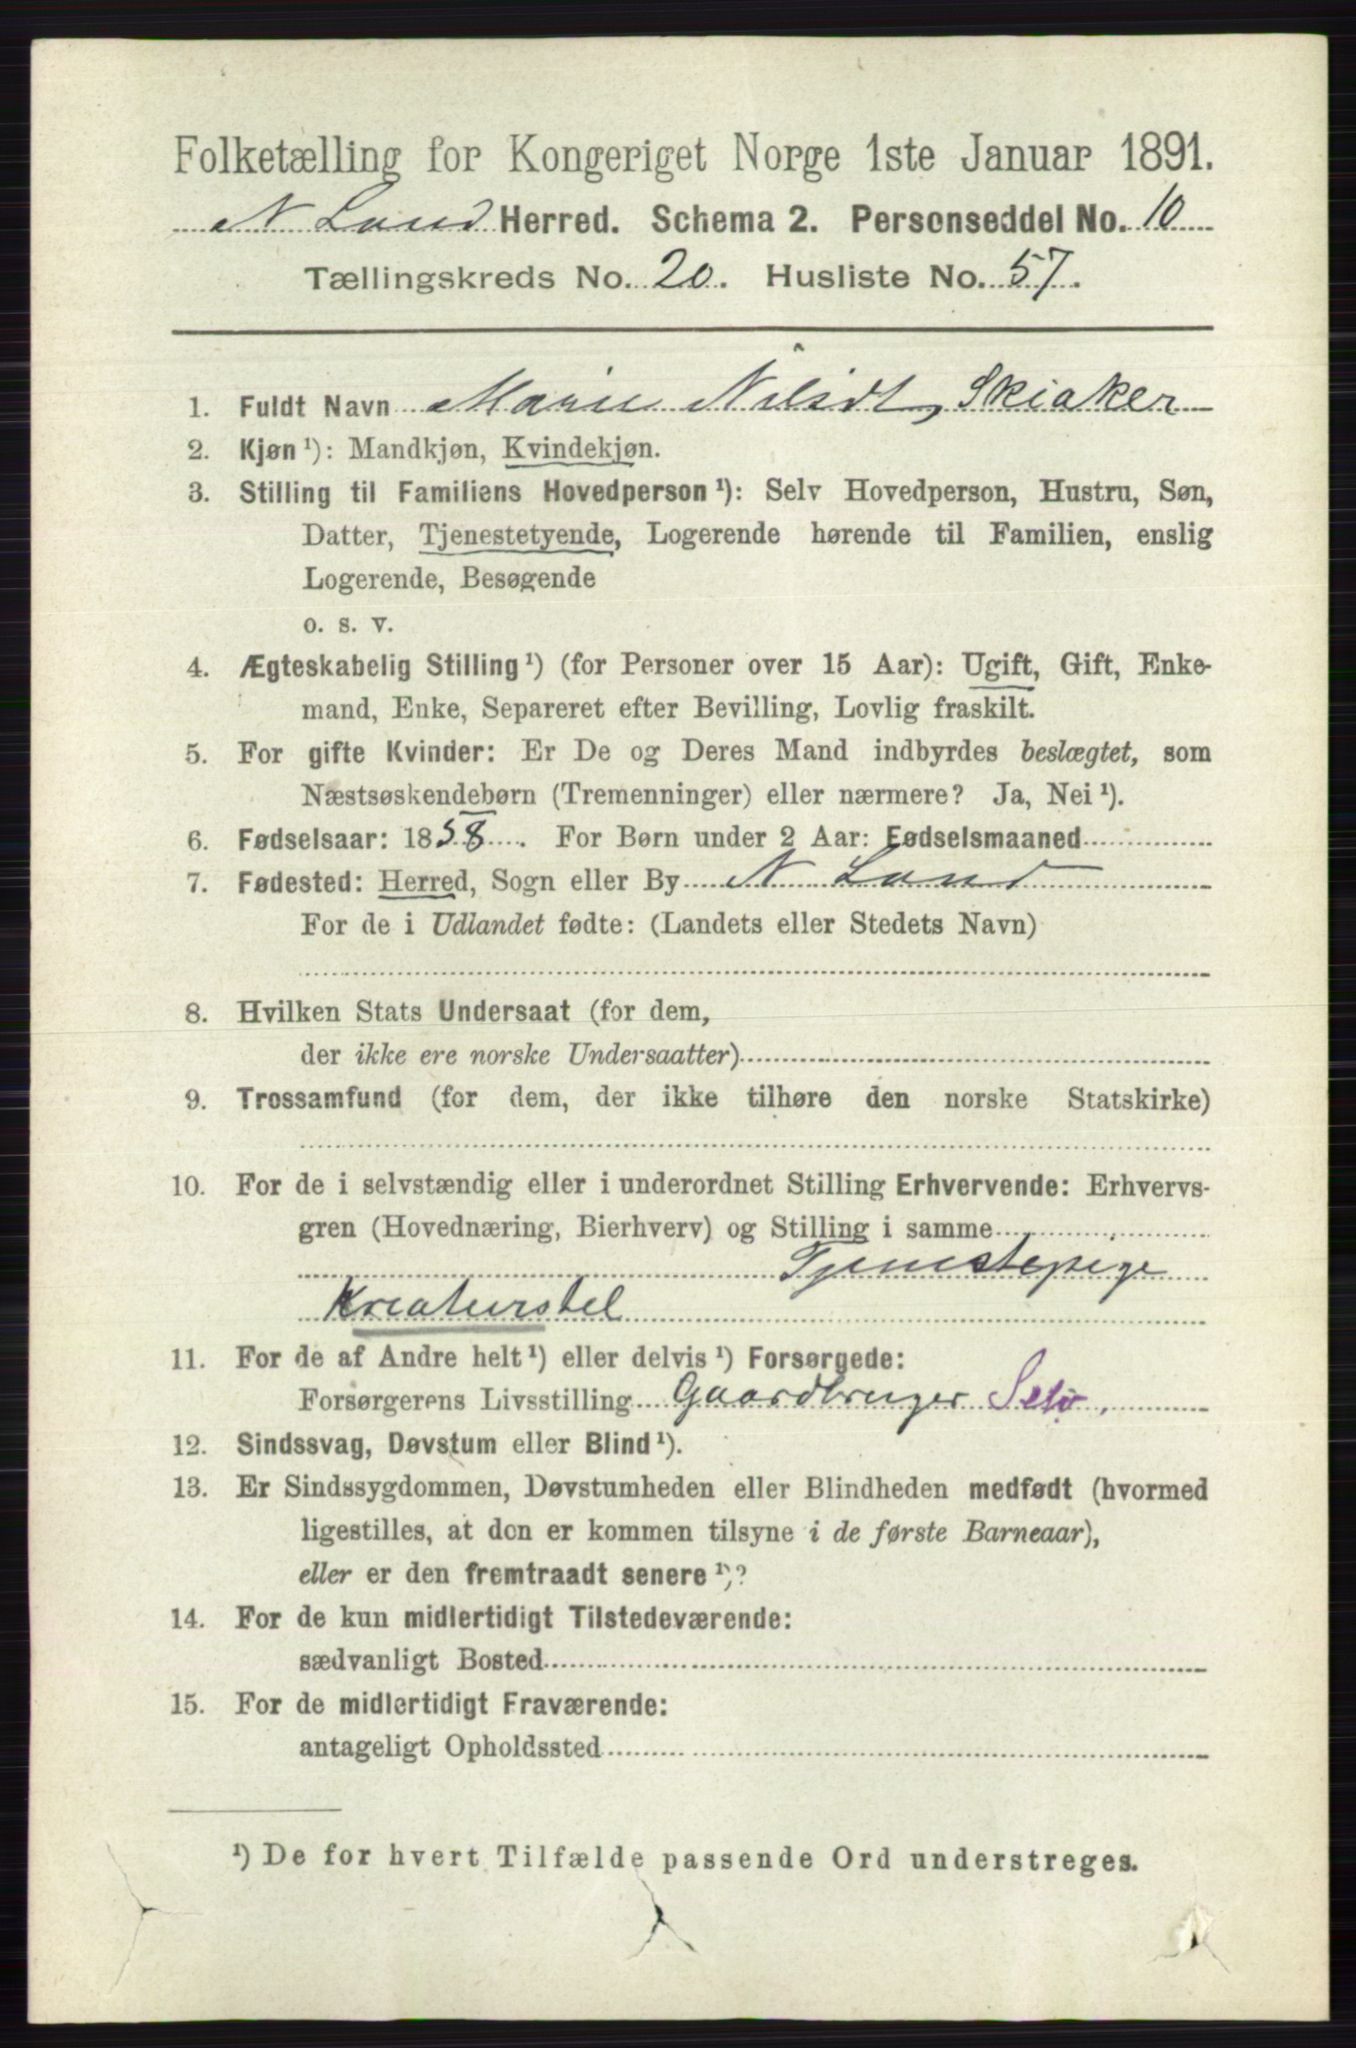 Folketælling for Kongeriget Norge 1ste Januar 1891.
N Land Herred. Schema 2. Personseddel No. 10
Tællingskreds No. 20. Husliste No. 57.
1. Fuldt Navn Marie Nilsdt, Skiaker
2. Kjøn ¹): Mandkjøn, Kvindekjøn.
3. Stilling til Familiens Hovedperson ¹): Selv Hovedperson, Hustru, Søn,
Datter, Tjenestetyende, Logerende hørende til Familien, enslig
Logerende, Besøgende
o. s. v.
4. Ægteskabelig Stilling ¹) (for Personer over 15 Aar): Ugift, Gift, Enke-
mand, Enke, Separeret efter Bevilling, Lovlig fraskilt.
5. For gifte Kvinder: Er De og Deres Mand indbyrdes beslægtet, som
Næstsøskendebørn (Tremenninger) eller nærmere? Ja, Nei ¹).
6. Fødselsaar: 1858. For Børn under 2 Aar: Fødselsmaaned
7. Fødested: Herred, Sogn eller By N Land
For de i Udlandet fødte: (Landets eller Stedets Navn)
8. Hvilken Stats Undersaat (for dem,
der ikke ere norske Undersaatter)
9. Trossamfund (for dem, der ikke tilhøre den norske Statskirke)
10. For de i selvstændig eller i underordnet Stilling Erhvervende: Erhvervs-
gren (Hovednæring, Bierhverv) og Stilling i samme
Tjenestepige
Kreaturstel
11. For de af Andre helt ¹) eller delvis ¹) Forsørgede:
Forsørgerens Livsstilling Gaardbruger Selv.
12. Sindssvag, Døvstum eller Blind ¹).
13. Er Sindssygdommen, Døvstumheden eller Blindheden medfødt (hvormed
ligestilles, at den er kommen tilsyne i de første Barneaar),
eller er den fremtraadt senere ¹)?
14. For de kun midlertidigt Tilstedeværende:
sædvanligt Bosted
15. For de midlertidigt Fraværende:
antageligt Opholdssted
¹) De for hvert Tilfælde passende Ord understreges.